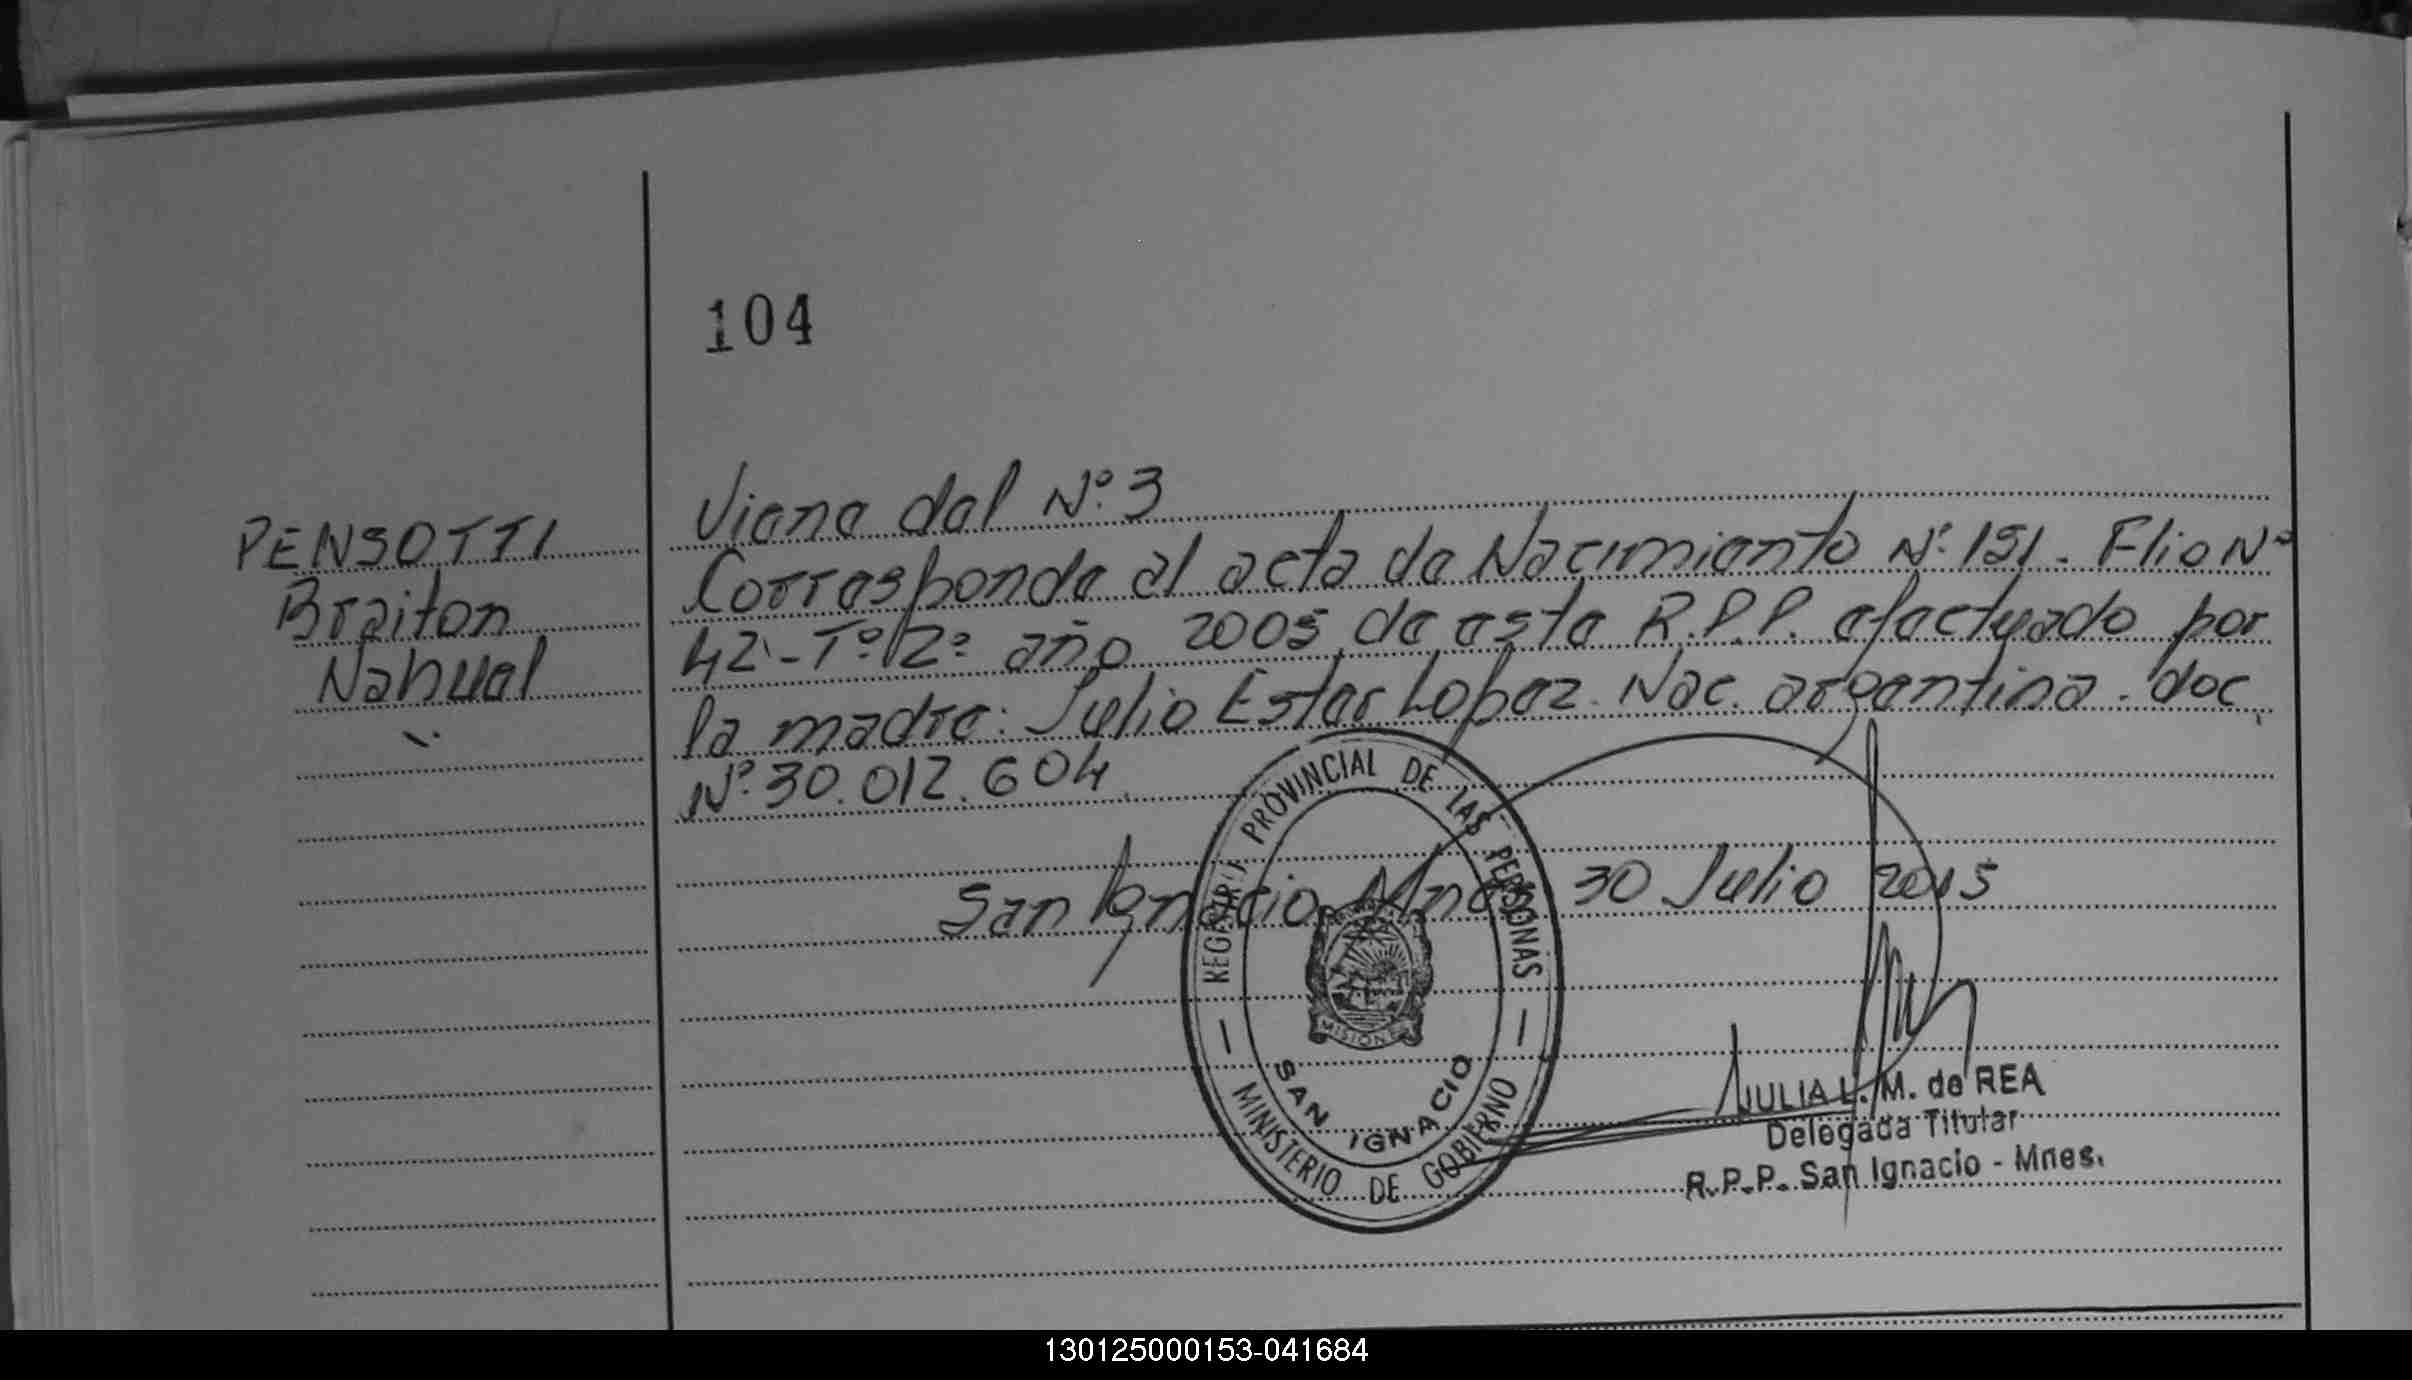 104
PENSOTTI
Braiton
Nahuel
Viene del Nº 3
Corresponde al acta de Nacimiento Nº 151. Flio Nº
42 - Tº 2º año 2005 de esta R.P.P. efectuado por
la madre: Julia Ester Lopez. Nac. argentina. doc.
Nº 30.012.604
San Ignacio, Mnes 30 Julio 2005
REGISTRO PROVINCIAL DE LAS PERSONAS
MISIONES
SAN IGNACIO
MINISTERIO DE GOBIERNO
JULIA L. M. de REA
Delegada Titular
R.P.P. San Ignacio - Mnes.
130125000153-041684